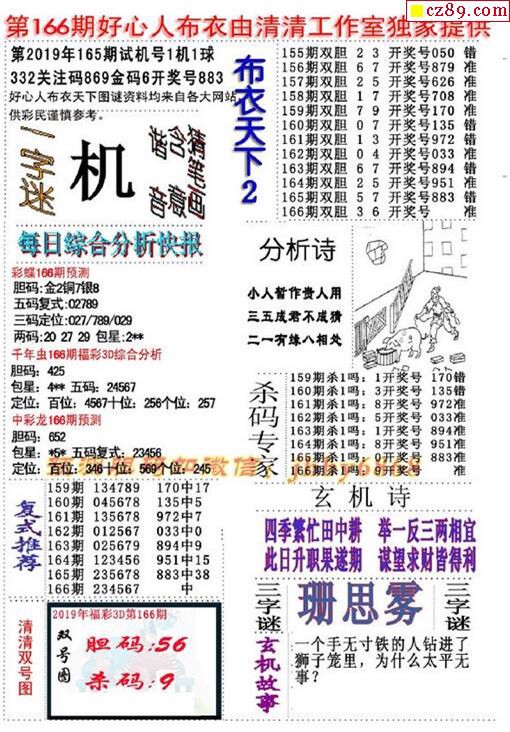 cz89.com
第166期好心人布衣由清清工作室独家提供
第2019年165期试机号1机1球
332关注码869金码6开奖号883
好心人布衣天下图谜资料均来自各大网站
供彩民谨慎参考。
一字迷
机
谐音
含意
猜笔画
布衣天下2
155期双胆 2 3 开奖号050 错
156期双胆 8 7 开奖号879 准
157期双胆 2 6 开奖号626 准
158期双胆 1 7 开奖号708 准
159期双胆 7 9 开奖号170 准
160期双胆 0 7 开奖号135 错
161期双胆 1 9 开奖号972 准
162期双胆 0 4 开奖号033 准
163期双胆 6 7 开奖号894 错
164期双胆 2 5 开奖号951 准
165期双胆 5 7 开奖号883 错
166期双胆 3 6 开奖号 准
每日综合分析快报
彩蝶166期预测
胆码:金2铜7银8
五码复式:02789
三码定位:027/789/029
两码:20 27 29 包星:2**
千年虫166期福彩3D综合分析
胆码:425
包星:4** 五码:24567
定位:百位:4567十位:256个位:257
中彩龙166期预测
胆码:652
包星:*5* 五码复式:23456
定位:百位:346十位:569个位:245
分析诗
小人暂作贵人用
三五成君不成猜
二一有缘八相处
杀码专家
159期杀1吗:1开奖号 170错
160期杀1吗:3开奖号 135错
161期杀1吗:8开奖号 972准
162期杀1吗:5开奖号 033准
163期杀1吗:3开奖号 894准
164期杀1吗:6开奖号 951准
165期杀1吗:0开奖号 883准
166期杀1吗:9开奖号 准
复式推荐
159期 134789 170中17
160期 045678 135中5
161期 135678 972中7
162期 012567 033中0
163期 025679 894中9
164期 123456 951中15
165期 235678 883中38
166期 234567 中
玄机诗
四季繁忙田中耕 举一反三两相宜
此日升职果遂期 谋望求财皆得利
三字谜
珊思雾
三字谜
清清双号图
2019年福彩3D第166期
双号图
胆码:56
杀码:9
玄机故事
一个手无寸铁的人钻进了
狮子笼里，为什么太平无
事?